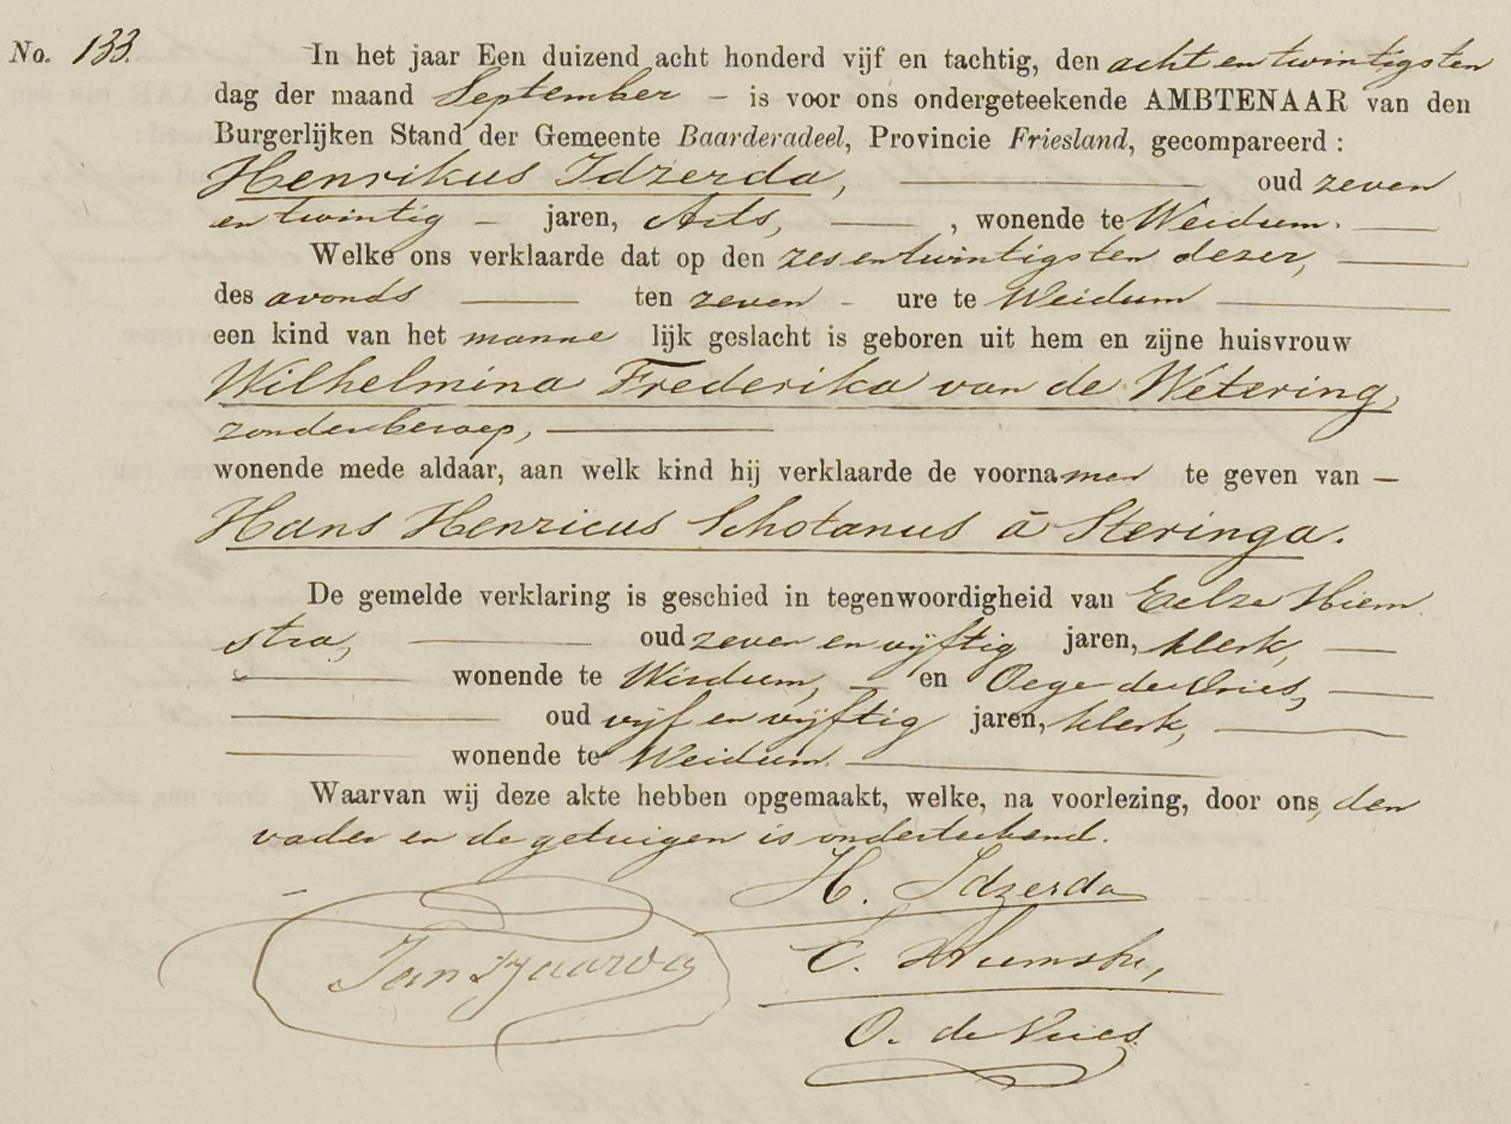 No. 133.
In het jaar Een duizend acht honderd vijf en tachtig, den acht en twintigsten
dag der maand September – is voor ons ondergeteekende AMBTENAAR van den
Burgerlijken Stand der Gemeente Baarderadeel, Provincie Friesland, gecompareerd :
Henrikus Idzerda, — oud zeven
en twintig – jaren, Arts, — , wonende te Weidum. —
Welke ons verklaarde dat op den zes en twintigsten dezer, —
des avonds — ten zeven – ure te Weidum —
een kind van het manne lijk geslacht is geboren uit hem en zijne huisvrouw
Wilhelmina Frederika van de Wetering,
zonder beroep, —
wonende mede aldaar, aan welk kind hij verklaarde de voornamen te geven van —
Hans Henricus Schotanus á Steringa.
De gemelde verklaring is geschied in tegenwoordigheid van Eelze Hiem
stra, — oud zeven en vijftig jaren, klerk, —
— wonende te Wirdum, – en Oege de Vries, —
— oud vijf en vijftig jaren, klerk, —
— wonende te Weidum. —
Waarvan wij deze akte hebben opgemaakt, welke, na voorlezing, door ons, den
vader en de getuigen is onderteekend.
H. Idzerda
E. Hiemstra,
O. de Vries